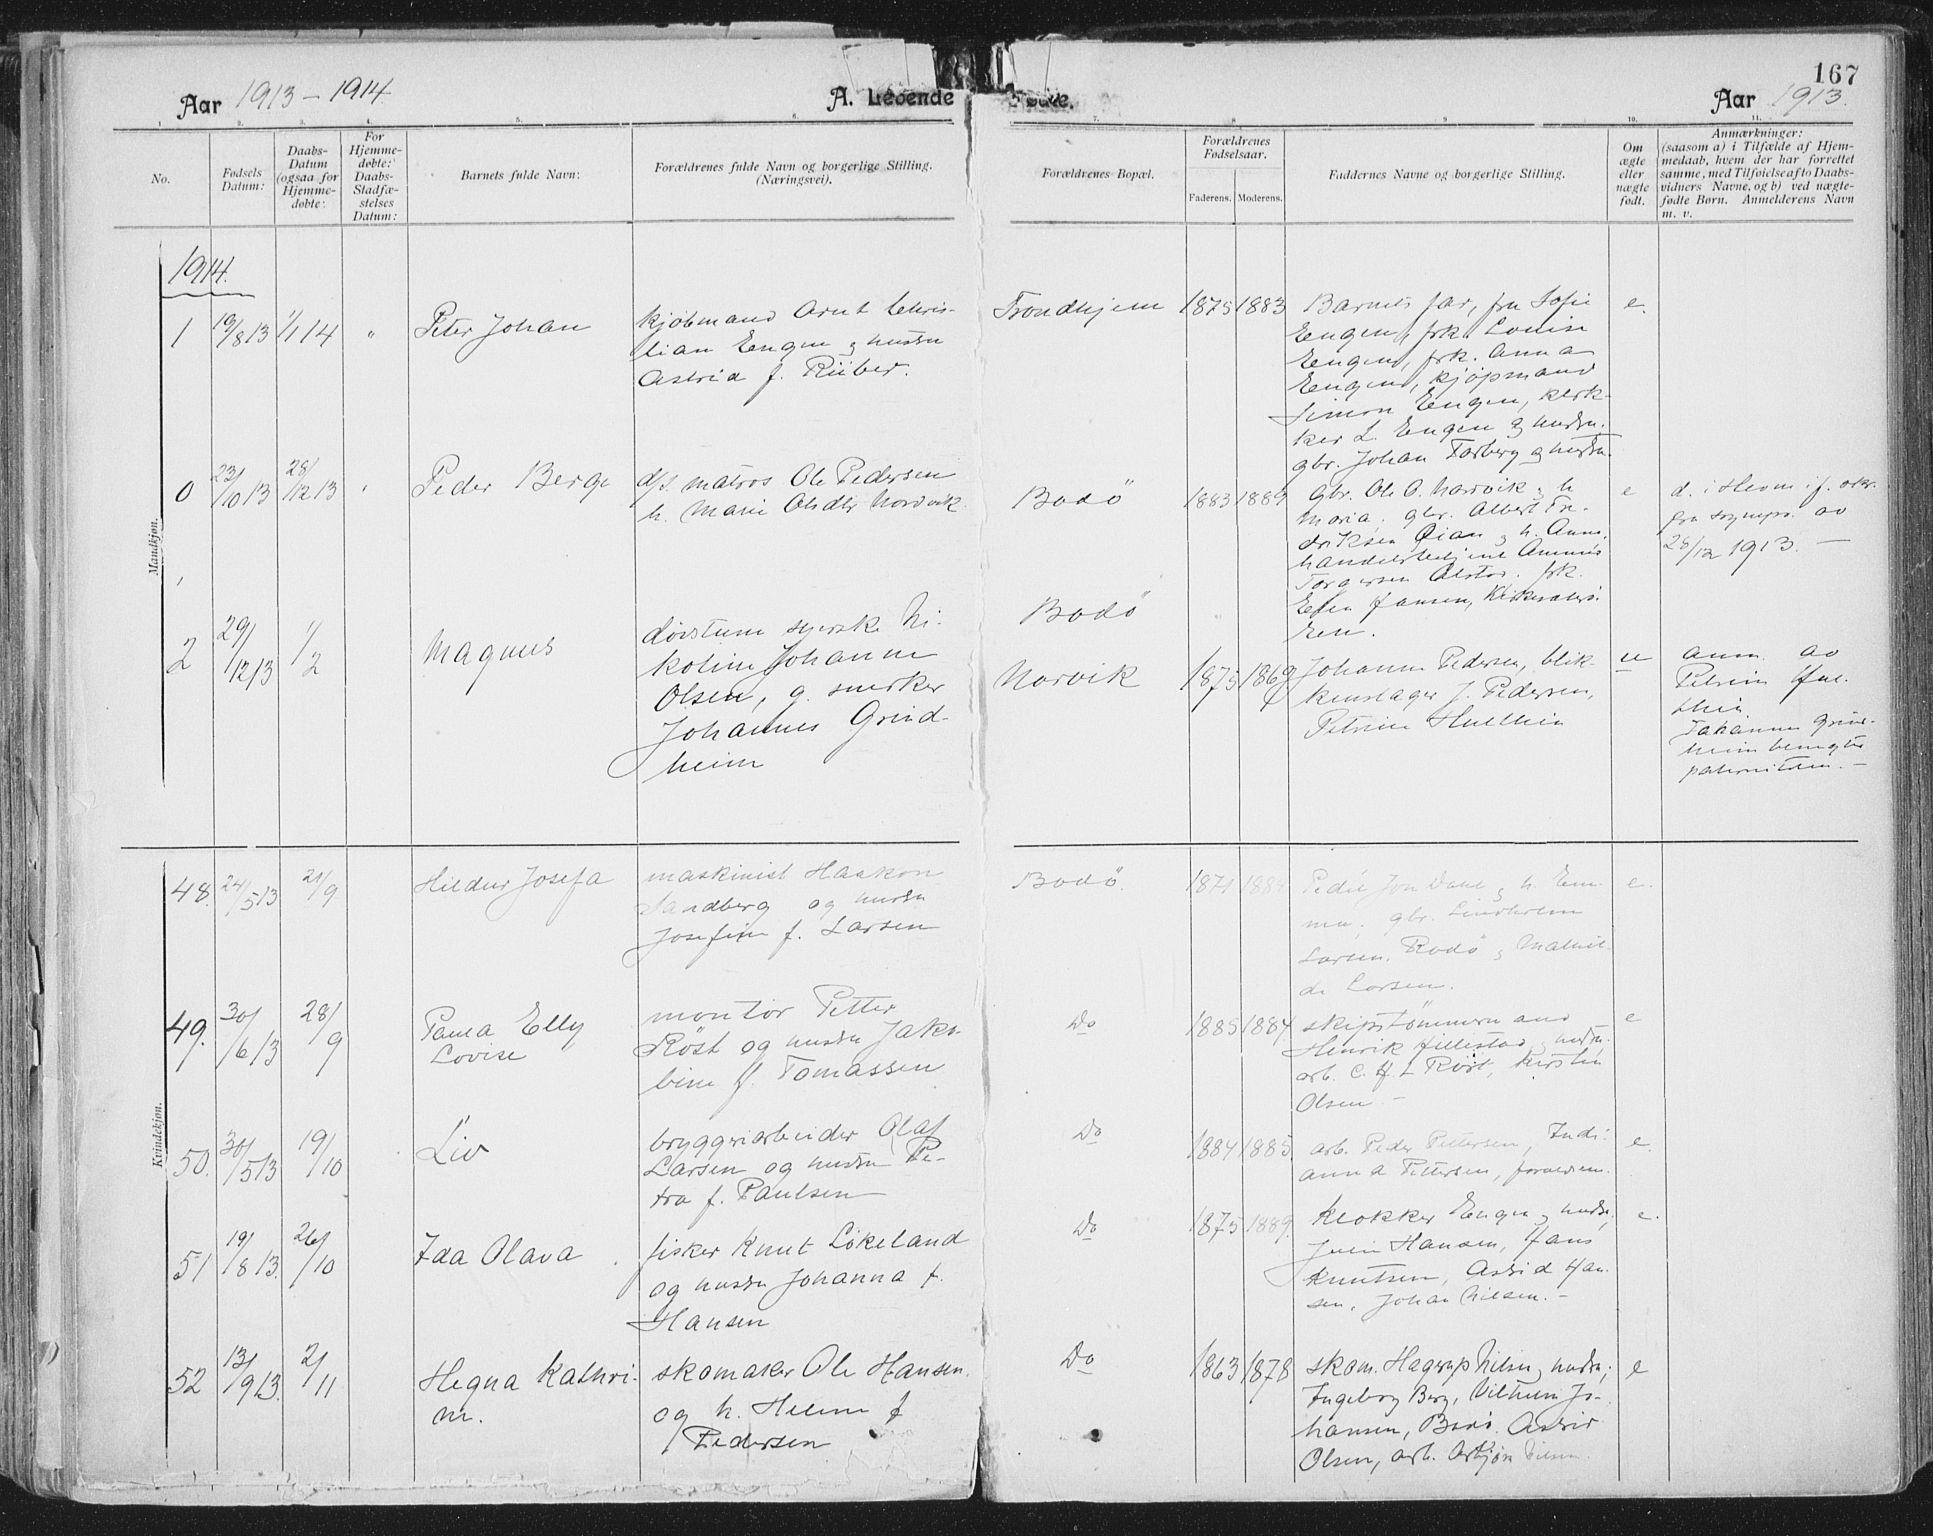 167
Aar 1913-1914
A. Levende
Fødte.
Aar 1913.
1. 2. 3. 4. 5. 6. 7. 8 9 10. 11.
No.
Fødsels Datum:
Daabs-Datum (ogsaa for Hjemme-døbte:
For Hjemme-døbte: Daabs-Stadfæ-stelses Datum:
Barnets fulde Navn:
Forældrenes fulde Navn og borgerlige Stilling.
(Næringsvei).
Forældrenes Bopæl.
Forældrenes Fødselsaar.
Faderens. Moderens.
Faddernes Navne og borgerlige Stilling.
Om ægte eller uægte født.
Anmærkninger:
(saasom a) i Tilfælde af Hjem-
medaab, hvem der har forrettet
samme, med Tilføielse af to Daabs-
vidners Navne, og b) ved uægte-
fødte Børn. Anmelderens Navn
m. v.
Mandkjøn.
1914.
1 19/8 13 1/1 14 " Peter Johan
kjøbmand Arnt Chris-
tian Engen og hustru
Astrid f. Rüber.
Trondhjem 1875 1883
Barnets far, fru Sofie
Engen, frk. Louise
Engen, frk. Anna
Engen, kjøpmand
Simon Engen, klok-
ker L. Engen og hustru.
gbr. Johan Farberg og hustru.
e.
0 23/10 13 28/12 13 " Peder Berge
d/s. matros Ole Pedersen
h. Marie Olsdtr Norvik.
Bodö 1883 1889
gbr. Ole O. Norvik og h
Maria, gbr. Albert Fre-
driksen Øian og h. Anna,
Torgersen Alstad. frk.
Jansen,
e
d. i Hevn i f.
av
28/12 1913. —
2 29/12 13 1/2 Magnus
døvstum syerske Ni-
koline Johanne
Olsen, g. snekker
Johannes Grind-
heim
Bodö "
Narvik 1875 1869
Johanne Pedersen, blik-
kenslager J. Pedersen,
Petrine Hulthin
ue
anm. av
Petrine Hul-
thin
Johannes Grind-
heim benegter
paterniteten. —
Kvindekjøn.
48. 24/5 13 21/9 Hildur Josefa
maskinist Haakon
Sandberg og hustru
Josefine f. Larsen
Bodö. 1871 1884
Peder Jon Dahl og h. Em-
ma, gbr. Lindholm
Larsen, Rodö og Mathil-
de Larsen.
e.
49. 30/6 13 28/9 Paula Elly
Lovise
montör Petter
Röst og hustru Jako-
bine f. Tomassen
Do 1885 1884.
skipstömmermand
Henrik Jillestad og hustru.
arb. C. H. L Röst, Kirstin
Olsen —
e
50. 30/5 13 19/10 Liv
bryggeriarbeider Olaf
Larsen og hustru Pe-
tra f. Paulsen
Do 1884 1885
arb. Peder Pettersen, Indi-
anna Pettersen, forældrene.
e.
51 19/8 13. 26/10 Ida Olava
fisker Knut Lökeland
og hustru Johanna f.
Hansen
Do 1875 1889.
klokker Engen og hustru,
Julie Hansen, Hans
Knutsen, Astrid Han-
sen, Johan Nilsen. —
e.
52 13/9 13. 2/11 Hegna Kathri-
ne.
skomaker Ole Hansen
og h. Helene f
Pedersen
Do 1863 1878
skom. Hagerup Nilsen og hustru;
Ingeborg Berg, Vilhelm Jo-
hansen, Bodö. Astrid
Olsen, arb. Asbjörn Nilsen.
e